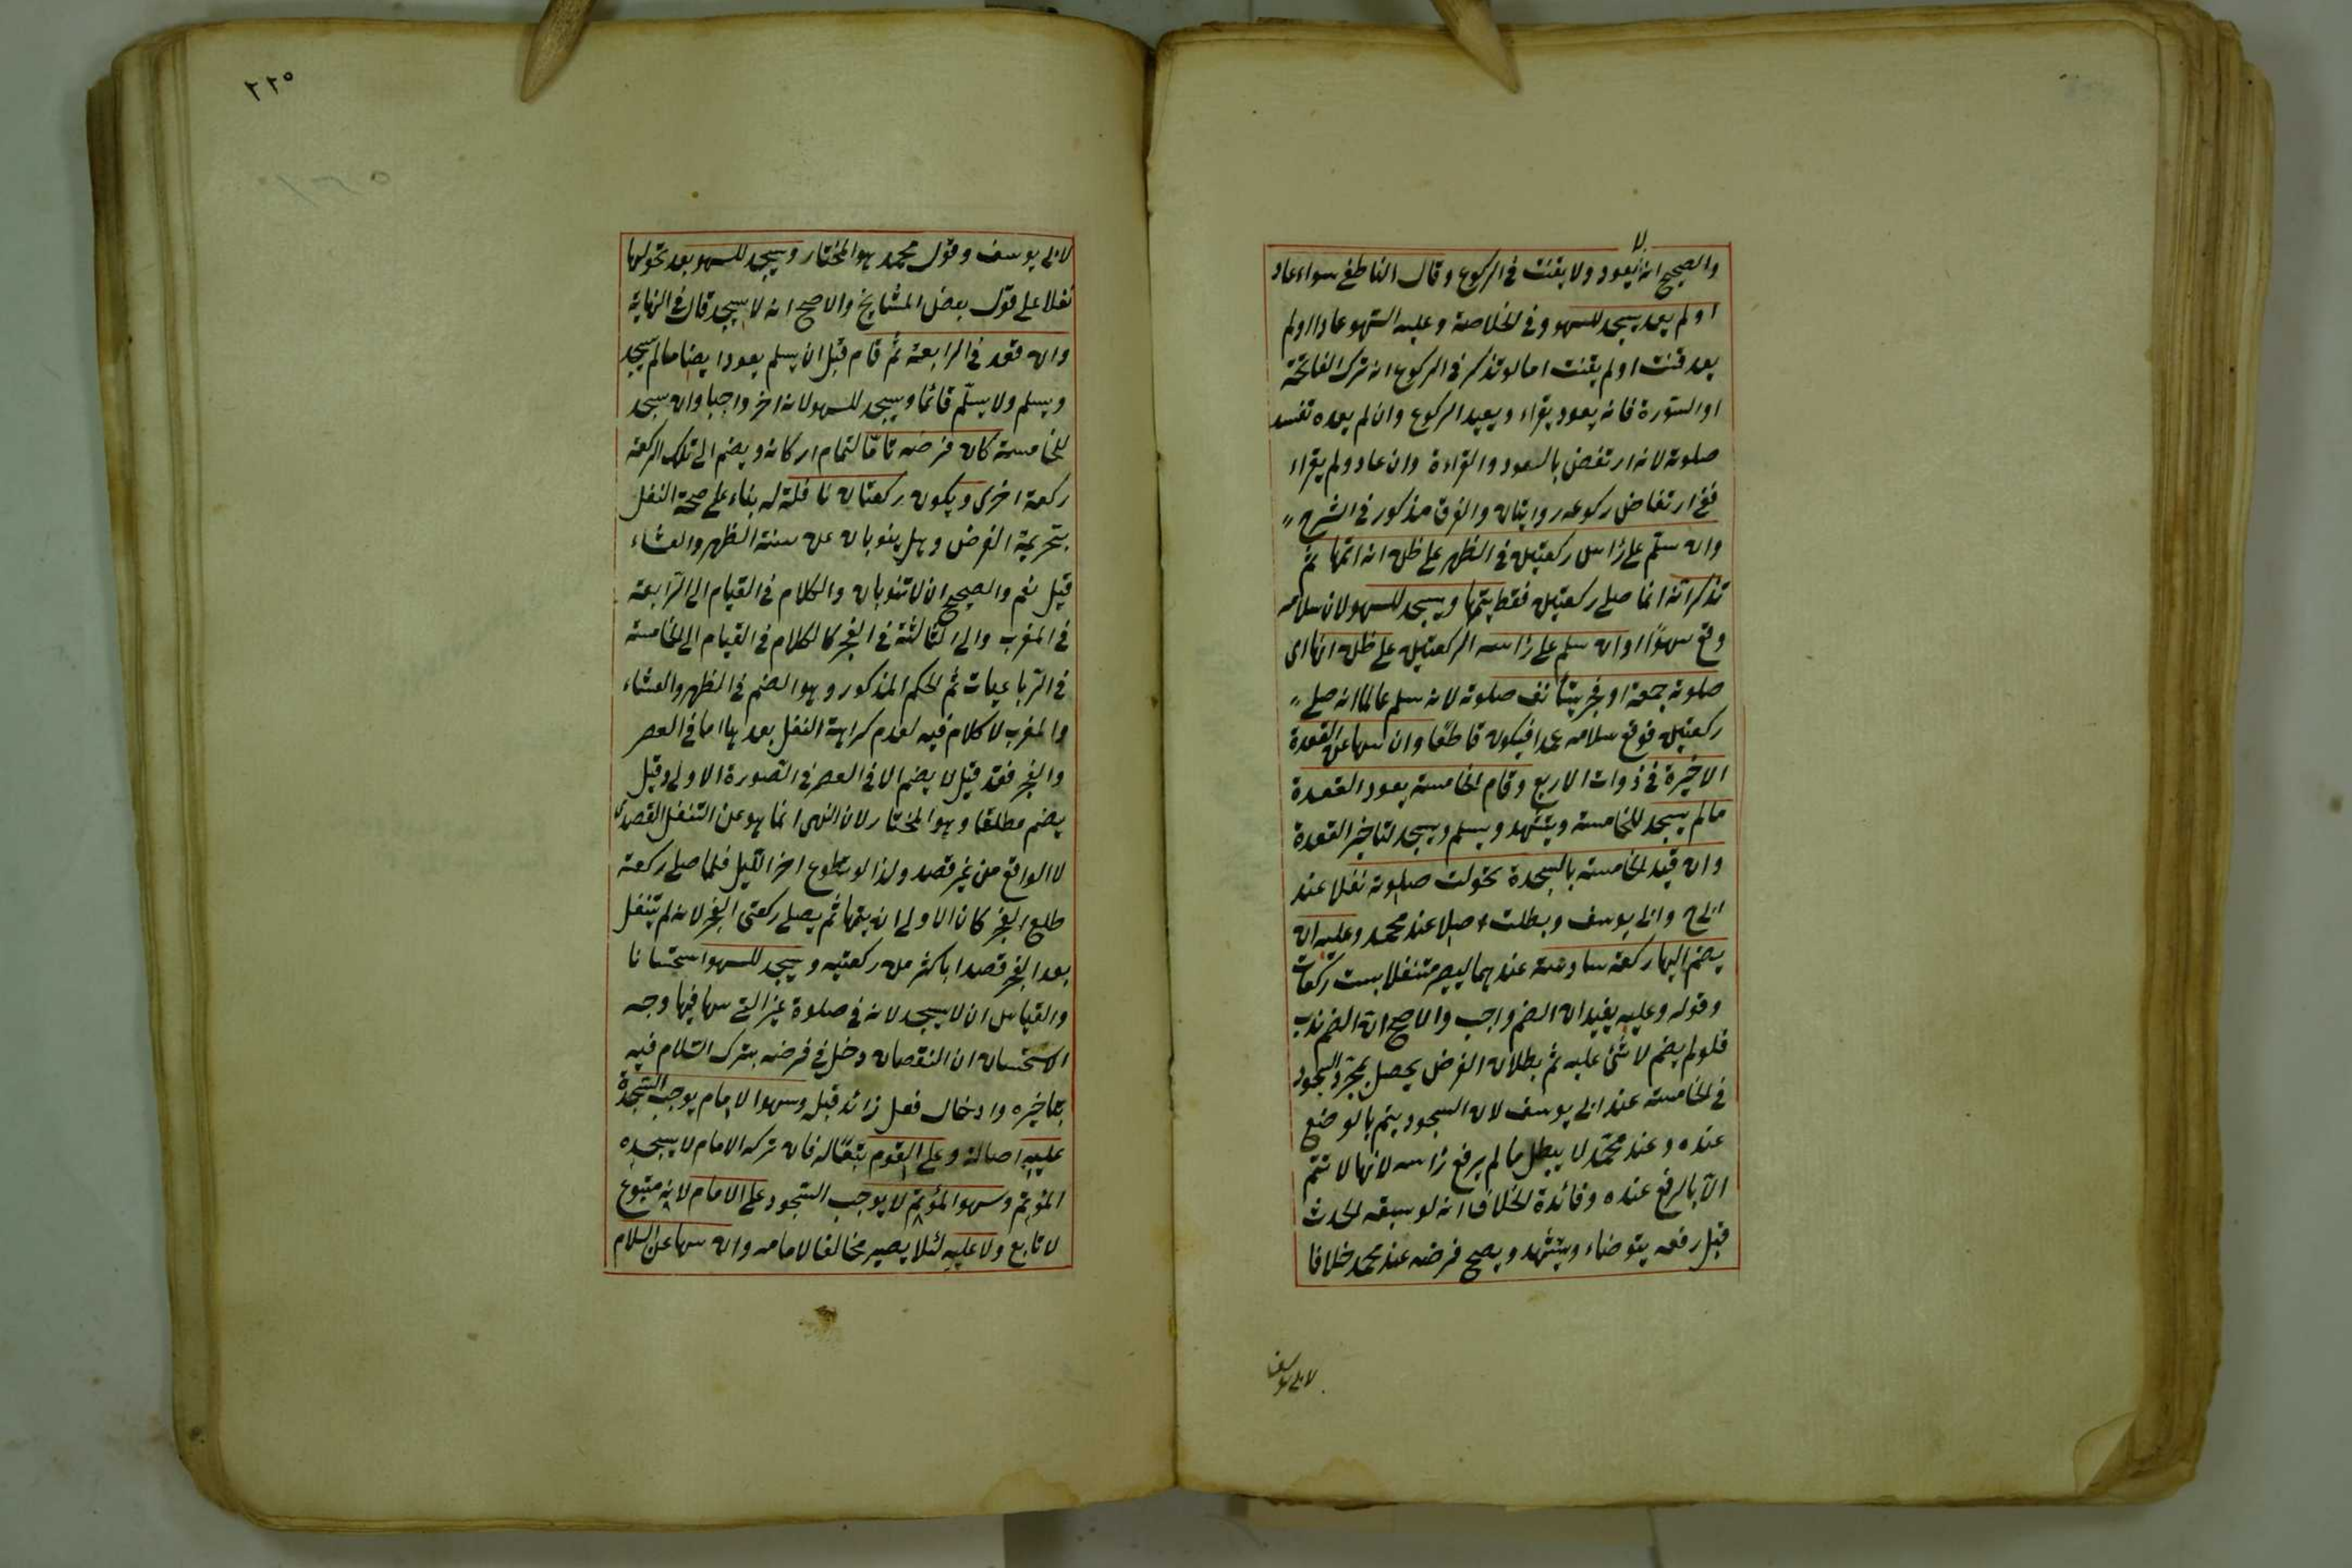 لا
والصحيح انه يعود ولا يقنت في الركوع وقال الناطفي سواء عاد
او لم يعد يسجد للسهو وفي الخلاصة وعليه السهو عاد او لم
يعد قنت او لم يقنت اما لو تذكر في الركوع انه ترك الفاتحة
او السورة فانه يعود يقراء ويعيد الركوع وان لم يعده تفسد
صلوته لانه ارتفض بالعود والقراءة وان عاد ولم يقراء
ففي ارتفاض ركوعه روايتان والفرق مذكور في الشرح
وان سلم على راس ركعتين في الظهر على ظن انه اتمها ثم
تذكر انه انما صلى ركعتين فقط يتمها ويسجد للسهو لان سلامه
وقع سهوا وان سلم على راس الركعتين على ظن انها اى
صلوته جمعة او فجر يستانف صلوته لانه سلم عالما انه صلى
ركعتين فوقع سلامه عمدا فيكون قاطعا وان سها عن القعدة
الاخيرة في ذوات الاربع وقام لخامسة يعود القعدة
مالم يسجد للخامسة ويتشهد ويسلم ويسجد لتاخير القعدة
وان قيد الخامسة بالسجدة تحولت صلوته نفلا عند
ابي ح وابي يوسف وبطلت اصلا عند محمد وعليه ان
يضم اليها ركعة سادسة عندهما ليصير متنفلا بست ركعات
وقوله وعليه يفيد ان الضم واجب والاصح ان الضم ندب
فلو لم يضم لا شئ عليه ثم بطلان الفرض يحصل بمجرد السجود
في الخامسة عند ابي يوسف لان السجود يتم بالوضع
عنده وعند محمد لا يبطل مالم يرفع راسه لانها لا تتم
الا بالرفع عنده وفائدة الخلاف انه لو سبقه الحدث
قبل رفعه يتوضاء ويتشهد ويصح فرضه عند محمد خلافا
لابي يوسف
٢٢٥
لابي يوسف وقول محمد هو المختار ويسجد للسهو بعد تحولها
نفلا على قول بعض المشايخ والاصح انه لا يسجد قال في النهاية
وان قعد في الرابعة ثم قام قبل ان يسلم يعود ايضا مالم يسجد
ويسلم ولا يسلم قائما ويسجد للسهو لانه اخر واجبا وان سجد
للخامسة كان فرضه تاما لتمام اركانه ويضم الى تلك الركعة
ركعة اخرى ويكون ركعتان نافلة له بناء على صحة النفل
بتحريمة الفرض وهل ينوبان عن سنة الظهر والعشاء
قيل نعم والصحيح ان لا تنوبان والكلام في القيام الى الرابعة
في المغرب والى الثالثة في الفجر كالكلام في القيام الى الخامسة
في الرباعيات ثم الحكم المذكور وهو الضم في الظهر والعشاء
والمغرب لا كلام فيه لعدم كراهة النفل بعدها اما في العصر
والفجر فقد قيل لا يضم الا في العصر في الصورة الاولى وقيل
يضم مطلقا وهو المختار لان النهى انما هو عن التنفل القصدى
لا الواقع من غير قصد ولذا لو تطوع اخر الليل فلما صلى ركعة
طلع الفجر كان الاولى ان يتمها ثم يصلى ركعتى الفجر لانه لم يتنفل
بعد الفجر قصدا باكثر من ركعتيه ويسجد للسهو استحسانا
والقياس ان لا يسجد لانه في صلوة غير التى سها فيها وجه
الاستحسان ان النقصان دخل في فرضه بترك السلام فيه
بتاخيره وادخال فعل زائد قبله وسهو الامام يوجب السجدة
عليه اصالة وعلى القوم تبعا له فان تركه الامام لا يسجده
المؤتم وسهو المؤتم لا يوجب السجود على الامام لانه متبوع
لا تابع ولا عليه لئلا يصير مخالفا لامامه وان سها عن السلام